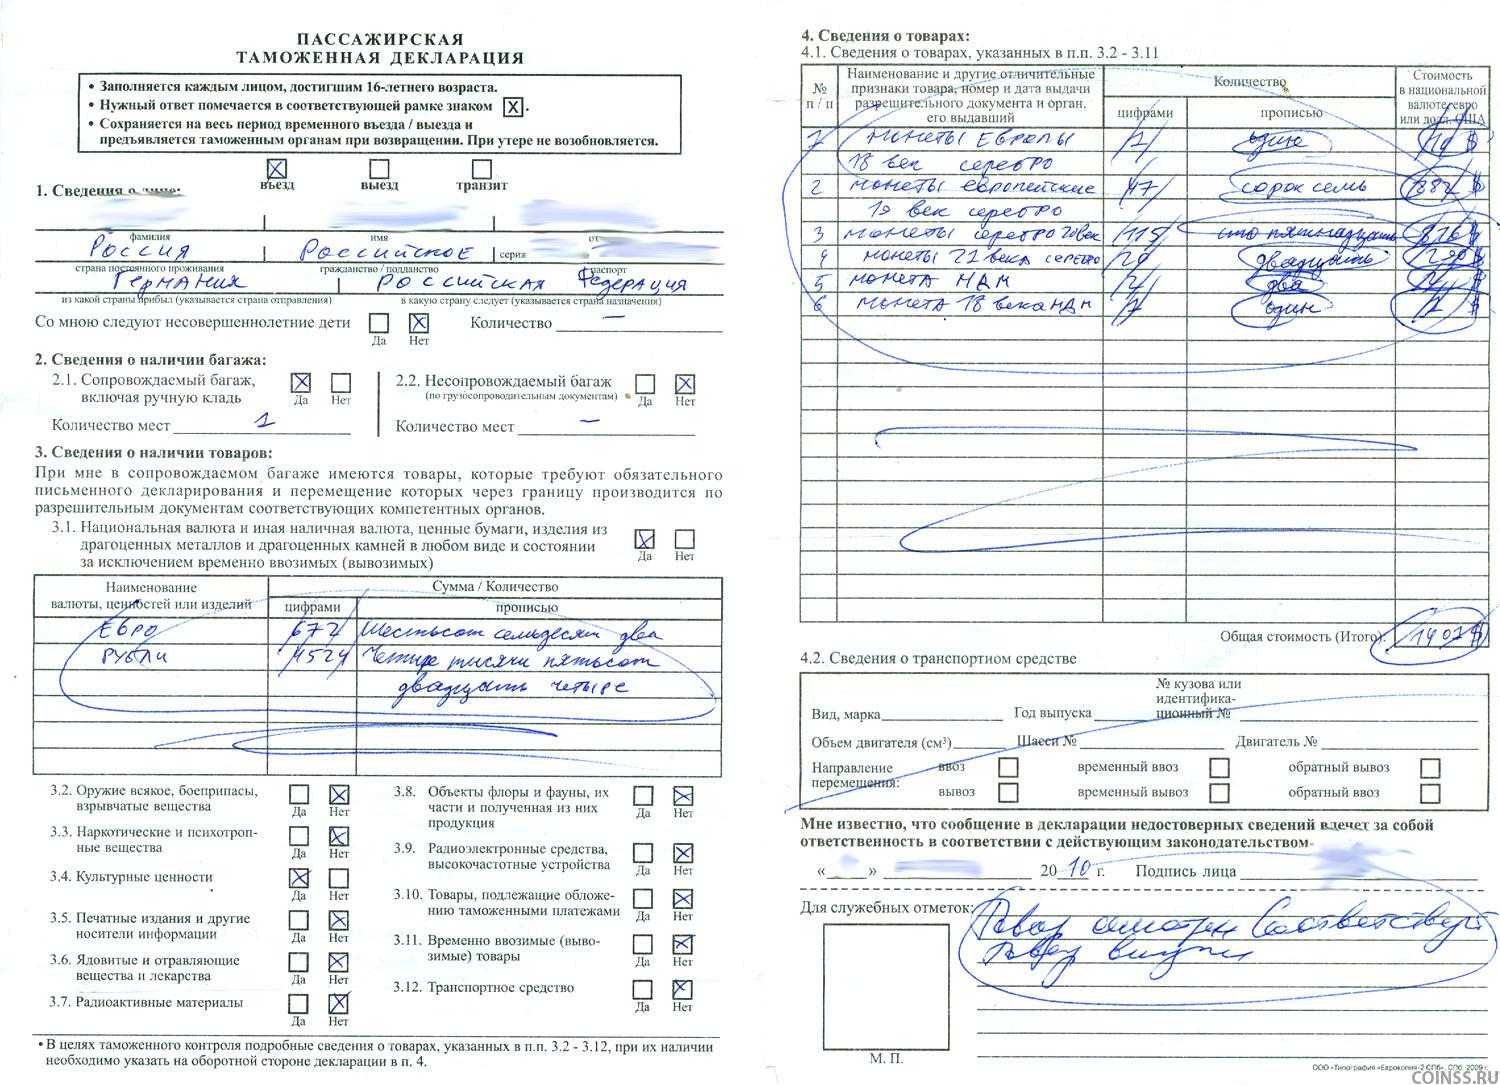 ПАССАЖИРСКАЯ
ТАМОЖЕННАЯ ДЕКЛАРАЦИЯ
• Заполняется каждым лицом, достигшим 16-летнего возраста.
• Нужный ответ помечается в соответствующей рамке знаком X.
• Сохраняется на весь период временного въезда / выезда и
предъявляется таможенным органам при возвращении. При утере не возобновляется.
въезд выезд транзит
1. Сведения о лице:
фамилия имя от
Россия Российское серия
страна постоянного проживания гражданство / подданство паспорт
Германия Российская Федерация
из какой страны прибыл (указывается страна отправления) в какую страну следует (указывается страна назначения)
Со мною следуют несовершеннолетние дети Да Нет Количество —
2. Сведения о наличии багажа:
2.1. Сопровождаемый багаж,
включая ручную кладь
Да Нет
Количество мест 1
2.2. Несопровождаемый багаж
(по грузосопроводительным документам)
Да Нет
Количество мест —
3. Сведения о наличии товаров:
При мне в сопровождаемом багаже имеются товары, которые требуют обязательного
письменного декларирования и перемещение которых через границу производится по
разрешительным документам соответствующих компетентных органов.
3.1. Национальная валюта и иная наличная валюта, ценные бумаги, изделия из
драгоценных металлов и драгоценных камней в любом виде и состоянии
за исключением временно ввозимых (вывозимых)
Да Нет
Наименование
валюты, ценностей или изделий
Сумма / Количество
цифрами прописью
Евро 672 Шестьсот семьдесят два
Рубли 4524 Четыре тысячи пятьсот
двадцать четыре
3.2. Оружие всякое, боеприпасы,
взрывчатые вещества
Да Нет
3.3. Наркотические и психотроп-
ные вещества
Да Нет
3.4. Культурные ценности
Да Нет
3.5. Печатные издания и другие
носители информации
Да Нет
3.6. Ядовитые и отравляющие
вещества и лекарства
Да Нет
3.7. Радиоактивные материалы
Да Нет
3.8. Объекты флоры и фауны, их
части и полученная из них
продукция
Да Нет
3.9. Радиоэлектронные средства,
высокочастотные устройства
Да Нет
3.10. Товары, подлежащие обложе-
нию таможенными платежами
Да Нет
3.11. Временно ввозимые (выво-
зимые) товары
Да Нет
3.12. Транспортное средство
Да Нет
• В целях таможенного контроля подробные сведения о товарах, указанных в п.п. 3.2 - 3.12, при их наличии
необходимо указать на оборотной стороне декларации в п. 4.
4. Сведения о товарах:
4.1. Сведения о товарах, указанных в п.п. 3.2 - 3.11
№
п / п
Наименование и другие отличительные
признаки товара, номер и дата выдачи
разрешительного документа и орган,
его выдавший
Количество
цифрами прописью
Стоимость
в национальной
валюте, евро
или долл. США
1 монеты Европы 1 один
18 век серебро
2 монеты европейские 47 сорок семь
19 век серебро
3 монеты серебро 20 век 115 сто пятнадцать
4 монеты 21 века серебро 20 двадцать
5 монета НДМ 2 два
6 монета 18 века НДМ 1 один
Общая стоимость (Итого): 1407 $
4.2. Сведения о транспортном средстве
Вид, марка Год выпуска № кузова или
идентифика-
ционный №
Объем двигателя (см³) Шасси № Двигатель №
Направление
перемещения:
ввоз временный ввоз обратный вывоз
вывоз временный вывоз обратный ввоз
Мне известно, что сообщение в декларации недостоверных сведений влечет за собой
ответственность в соответствии с действующим законодательством
« » 2010 г. Подпись лица
Для служебных отметок:
Товар смотрен Соответствует
Товар
М. П.
ООО «Типография «Еврокопия-2 СПб», СПб, 2009 г.
COINSS.RU